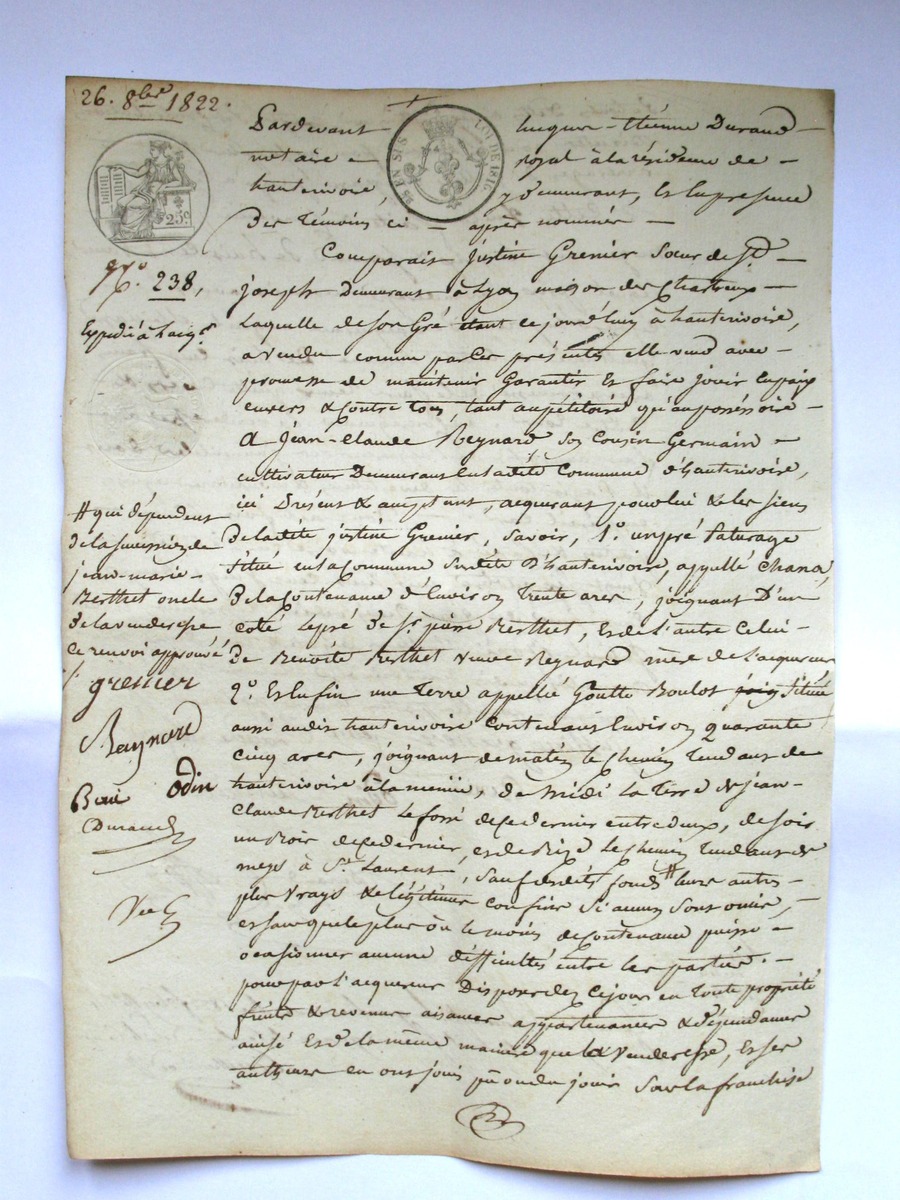 26. 8bre 1822.
Pardevant Jacques-Étienne Durand
notaire royal à la résidence de
hauterivoire, y demeurant, Et En présence
Des Témoins ci-après nommés
Comparait justine Grenier Sœur de St.
joseph Demeurant à Lyon maison des Chartreux
Laquelle de son Gré étant ce jourd'huy à hauterivoire,
a vendu comme par ces présentes elle vend avec
promesse de maintenir Garantir Et faire jouir En paix
envers & contre tous, tant au pétitoire qu'au possessoire
A jean-Claude Reynard son Cousin Germain
cultivateur Demeurant En ladite Commune d'hauterivoire,
ici Présent & acceptant, acquerant pour lui & les siens
De ladite justine Grenier, savoir, 1.o un pré Paturage
Situé en la commune Susdite D'hauterivoire, appellé Chana,
De la Contenance d'Environ trente ares, joignant D'un
coté le pré de Sr. pierre Berthet, Et de L'autre Celui
De Benoite Berthet veuve Reynard mère de l'acquereur
2.o Et Enfin une Terre appellée Goutte Boulot joig Située
aussi audit hauterivoire Contenant Environ quarante
cinq ares, joignant de matin le Chemin Tendant de
hauterivoire à la , de midi la Terre de jean-
Claude Berthet le fossé de ce dernier entre deux, de soir
un Bois de ce dernier, et de Bize le Chemin Tendant de
meys à St. Laurent, Sauf desdits fonds # leurs autres
plus vrays & légitimes confins Si aucuns sont omis,
et sans que le plus ou le moins de Contenance puisse
occasionner aucune difficultés entre les parties.
pour par l'acquereur Disposer dez Cejour en Toute propriété
fruits & revenus aisances appartenances & dépendances
ainsi Et de la même manière que la Venderesse, Et ses
autheurs en ont joui pu ou du jouir Sous la franchise
25 C. EN SUS
LOI DE 1816
25C.
N.o 238,
Expédié à l'acqr.
# qui dépendent
de la succession de
jean-marie
Berthet oncle
de la venderesse
Ce renvoi approuvé
grenier
Reynard
Odin
Durand